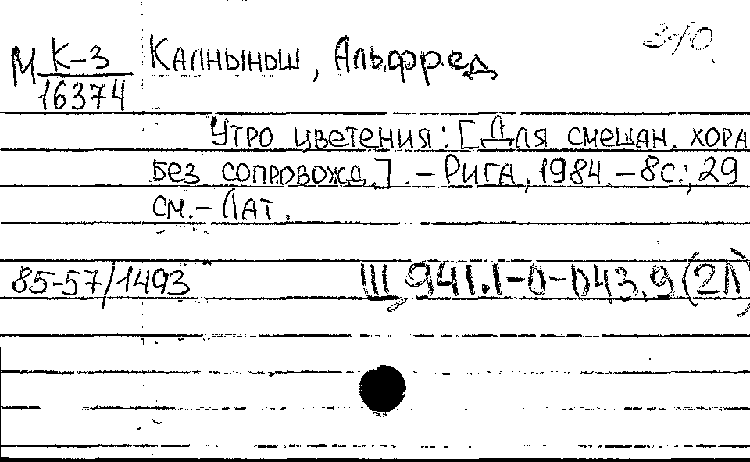 3-10.
М К-3 Калныньш, Альфред
16374
Утро цветения: [Для смешан. хора
без сопровожд.]. – Рига, 1984. – 8с.; 29
см. – Лат.
85-57/1493 Ш, 941.1-0-043.9(2Л)